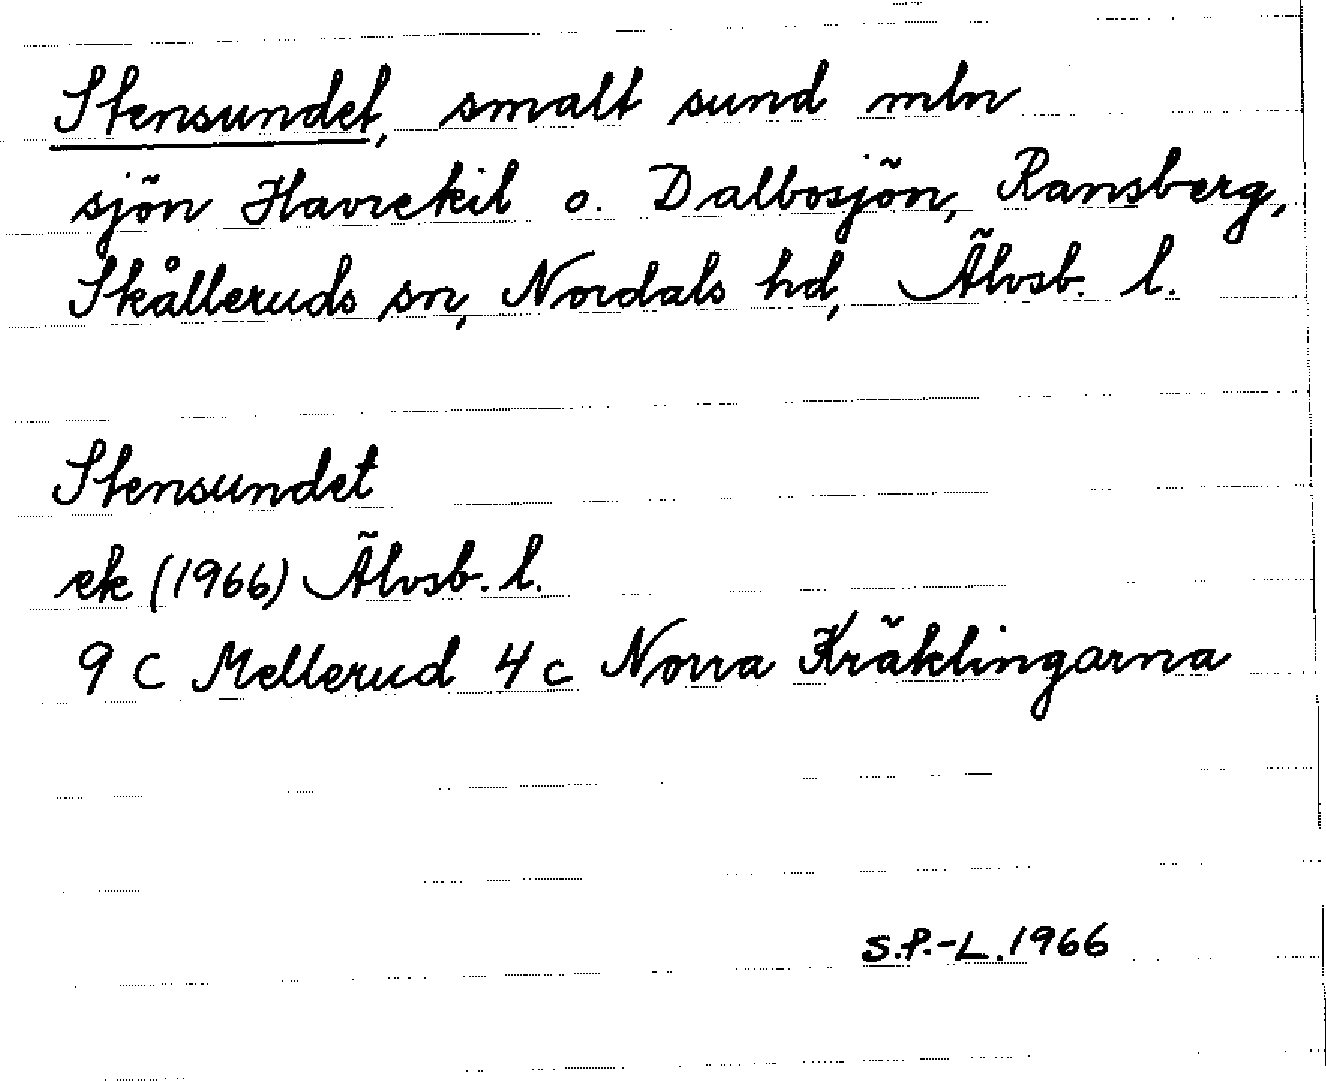 Stensundet, smalt sund mln
sjön Havrekil o. Dalbosjön, Ransberg,
Skålleruds sn, Nordals hd, Älvsb. l.
Stensundet
ek (1966) Älvsb. l.
9 C Mellerud 4 c Norra Kräklingarna
S.P.-L. 1966